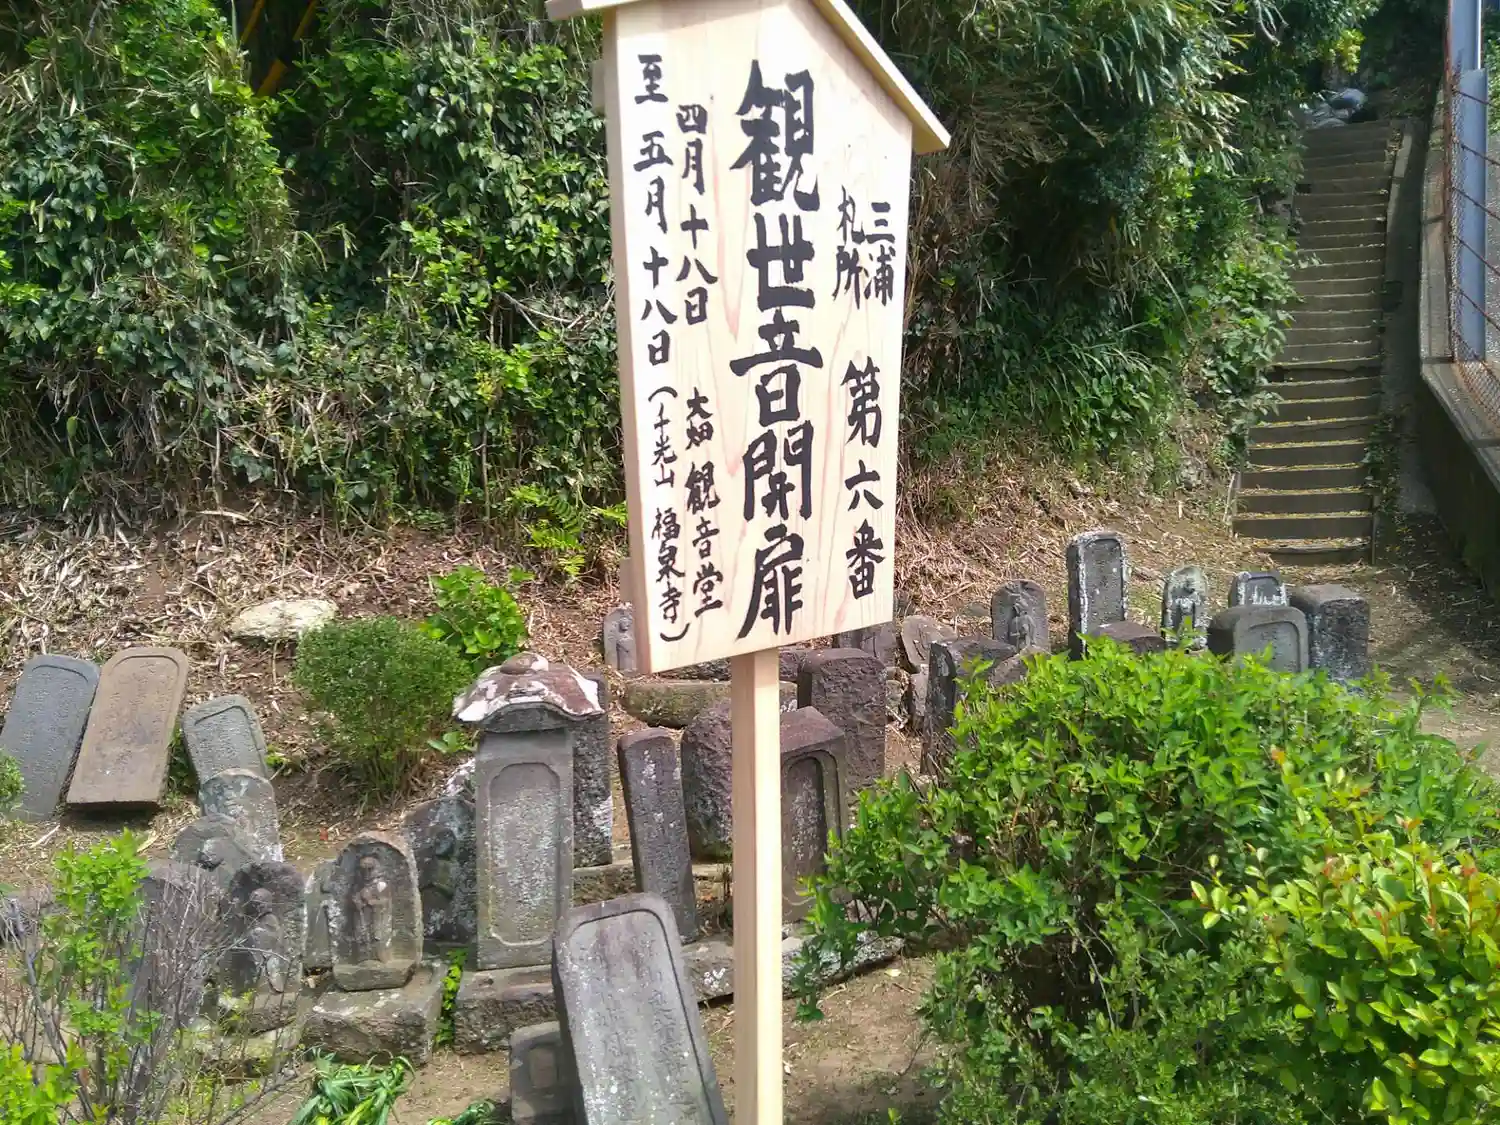 三浦
札所
第六番
観世音開扉
四月十八日
至五月十八日
大畑 観音堂
(千光山 福泉寺)